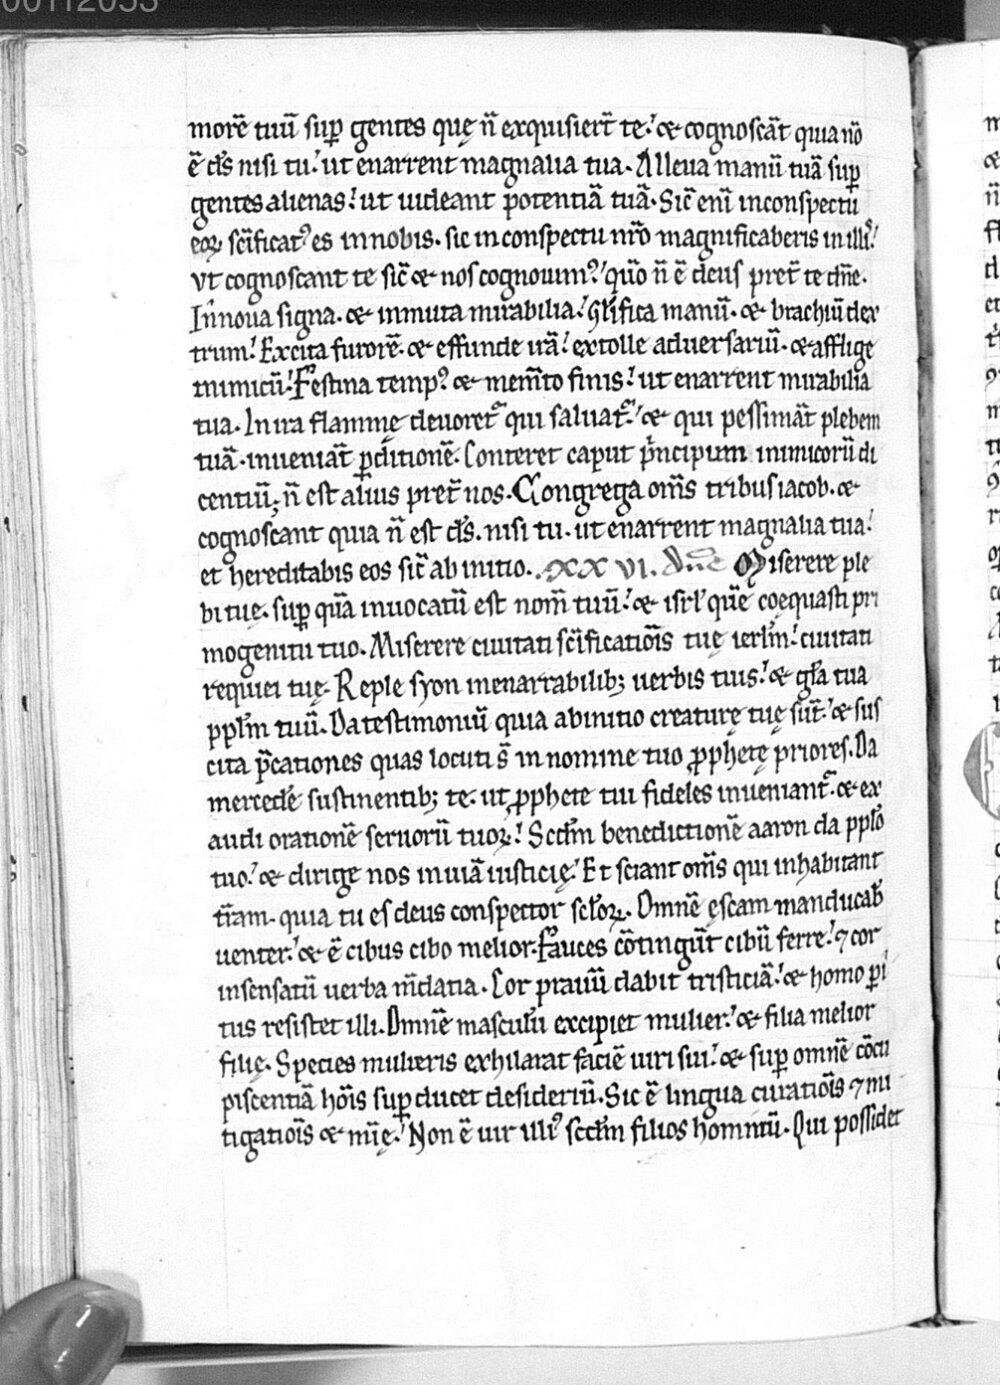 00112053
morē tuū suꝑ gentes quę n̄ exquisier̄t te. ⁊ cognoscāt quia nō
ē d̄s nisi tu. ut enarrent magnalia tua. Alleua manū tuā suꝑ
gentes alienas. ut uideant potentiā tuā. Sic̄ eni inconspectu
eoꝝ sc̄ificatꝰ es innobis. sic inconspectu nr̄o magnificaberis in illiꝰ.
Vt cognoscant te sic̄ ⁊ nos cognouimꝰ. quō n̄ ē deus pret̄ te dn̄e.
Innoua signa. ⁊ inmuta mirabilia. gl̄ifica manū. ⁊ brachiū dex
trum. Excita furorē. ⁊ effunde irā. extolle aduersariū. ⁊ afflige
inimicū. Festina tempꝰ ⁊ mem̄to finis. ut enarrent mirabilia
tua. In ira flammę deuoret̄ qui saluat̄. ⁊ qui pessimāt plebem
tuā. inueniāt ꝑditionē. Conteret caput p̄ncipum inimicorū di
centiū; n̄ est alius pret̄ nos. Congrega om̄s tribus iacob. ⁊
cognoscant quia n̄ est d̄s. nisi tu. ut enarrent magnalia tua.
et hereditabis eos sic̄ ab initio. .XXVI. Dn̄e Miserere ple
bi tuę. suꝑ quā inuocatū est nom̄ tuū. ⁊ isrł quē coęquasti pri
mogenitu tuo. Miserere ciuitati sc̄ificatiōis tuę ierłm. ciuitati
requiei tuę. Reple syon inenarrabilibꝫ uerbis tuis. ⁊ gł̄a tua
ppłm tuū. Da testimoniū quia abinitio creaturę tuę sūt. ⁊ sus
cita p̄cationes quas locuti s̄ in nomine tuo ꝓphetę priores. Da
mercedē sustinentibꝫ te. ut ꝓphete tui fideles inueniant̄. ⁊ ex
audi orationē seruorū tuoꝝ. Scd̄m benedictionē aaron da ppło
tuo. ⁊ dirige nos inuiā iusticię. Et sciant om̄s qui inhabitant
tr̄am. quia tu es deus conspector scłoꝝ. Omnē ęscam manducab̄
uenter. ⁊ ē cibus cibo melior. Fauces cōtingūt cibū ferrę. ⁊ cor
insensatū uerba m̄datia. Cor prauū dabit tristiciā. ⁊ homo ꝑi
tus resistet illi. Omnē masculū excipiet mulier. ⁊ filia melior
filię. Species mulieris exhilarat faciē uiri sui. ⁊ suꝑ omnē cōcu
piscentiā hōis suꝑducet desideriū. Sic ē lingua curatiōis ⁊ mi
tigatiōis ⁊ mīę. Non ē uir illiꝰ scd̄m filios hominū. Qui possidet